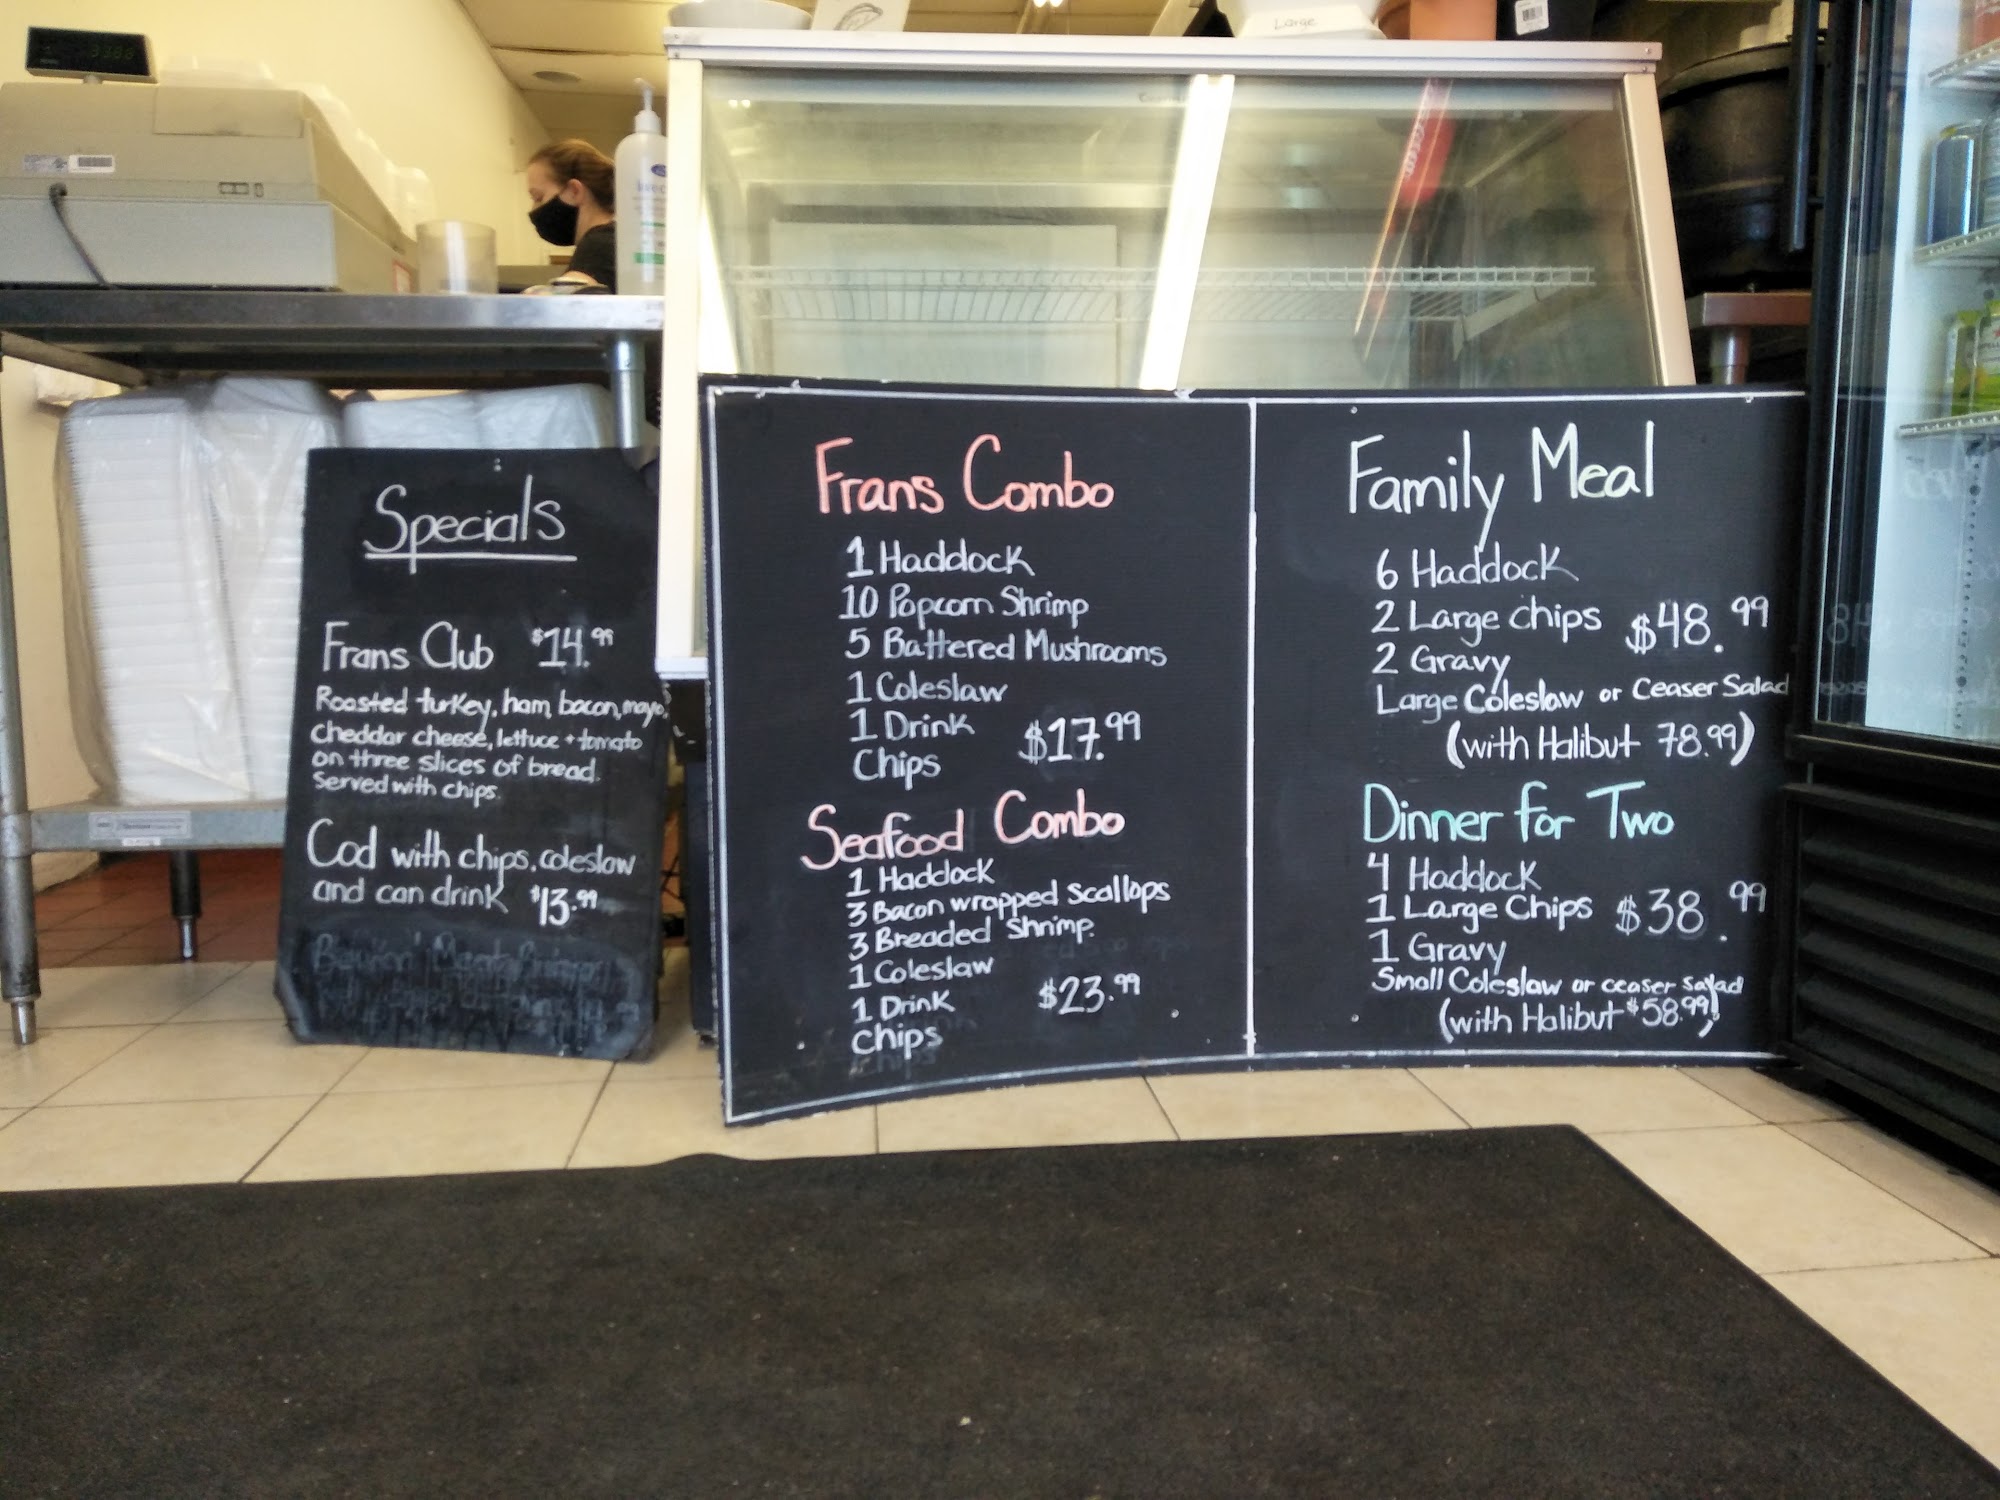 Large
Specials
Frans Club $14.99
Roasted turkey, ham, bacon, mayo,
cheddar cheese, lettuce + tomato
on three slices of bread.
Served with chips.
Cod with chips, coleslaw
and can drink $13.99
Frans Combo
1 Haddock
10 Popcorn Shrimp
5 Battered Mushrooms
1 Coleslaw
1 Drink $17.99
Chips
Seafood Combo
1 Haddock
3 Bacon wrapped Scallops
3 Breaded Shrimp
1 Coleslaw
1 Drink $23.99
Chips
Family Meal
6 Haddock
2 Large Chips $48.99
2 Gravy
Large Coleslaw or Ceaser Salad
(with Halibut 78.99)
Dinner for Two
4 Haddock
1 Large Chips $38.99
1 Gravy
Small Coleslaw or ceaser salad
(with Halibut $58.99)